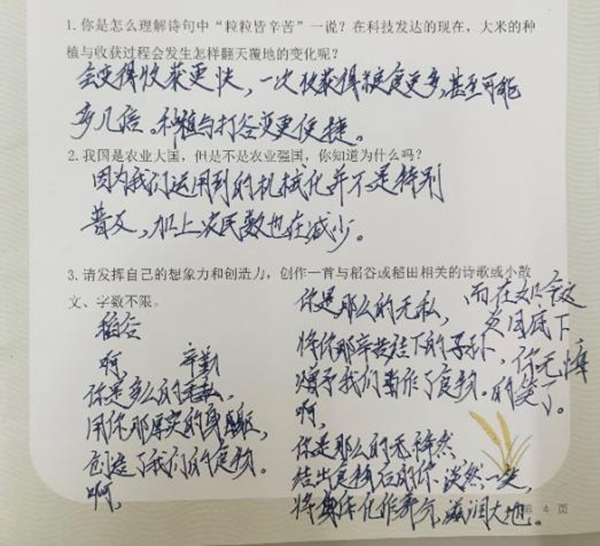 1. 你是怎么理解诗句中“粒粒皆辛苦”一说？在科技发达的现在，大米的种
植与收获过程会发生怎样翻天覆地的变化呢？
会变得收获更快，一次收获得粮食更多，甚至可能
多几倍。种植与打谷变更便捷。
2. 我国是农业大国，但是不是农业强国，你知道为什么吗？
因为我们运用到的机械化并不是特别
普及，加上农民数也在减少。
3. 请发挥自己的想象力和创造力，创作一首与稻谷或稻田相关的诗歌或小散
文、字数不限。
稻谷
啊， 辛勤
你是多么的无私，
用你那厚实的身躯，
创造了我们的食物。
啊，
你是那么的无私，
将你那辛苦结下的子孙，
赠予我们当作了食物。
啊，
你是那么的无
结出食物后的你淡然一笑，
将身体化作养分，滋润大地。
而在如今
炎阳底下
你无悔
的笑了。
第 4 页